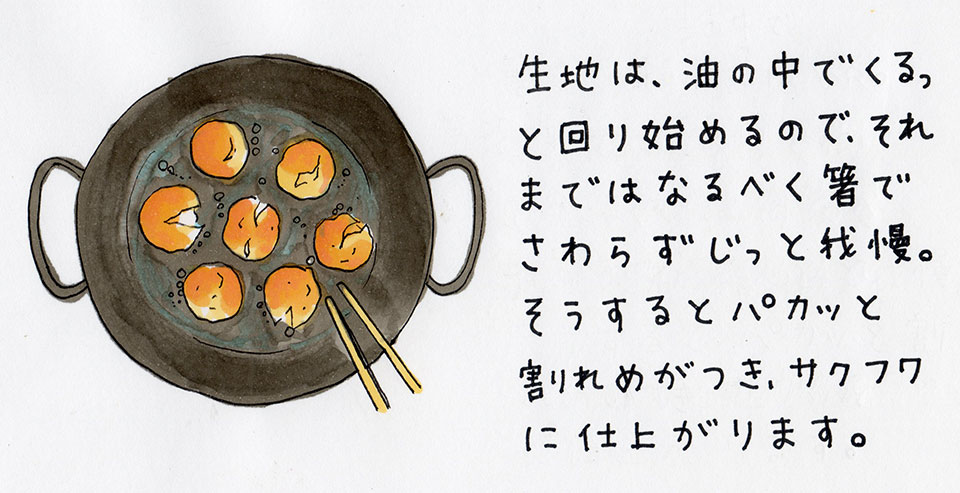 生地は、油の中でくるっ
と回り始めるので、それ
まではなるべく箸で
さわらずじっと我慢。
そうするとパカッと
割れめがつき、サクフワ
に仕上がります。